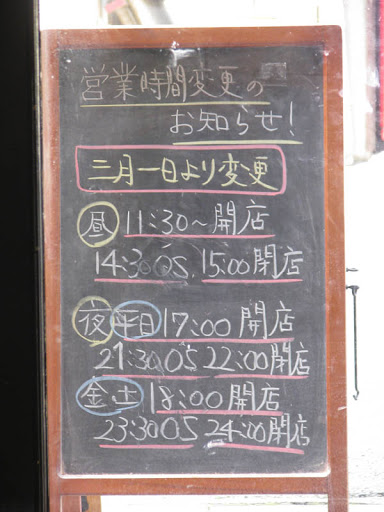 営業時間変更の
お知らせ!
三月一日より変更
昼 11:30~開店
14:30OS. 15:00閉店
夜 平日 17:00開店
21:30OS 22:00閉店
金土 18:00開店
23:30OS 24:00閉店